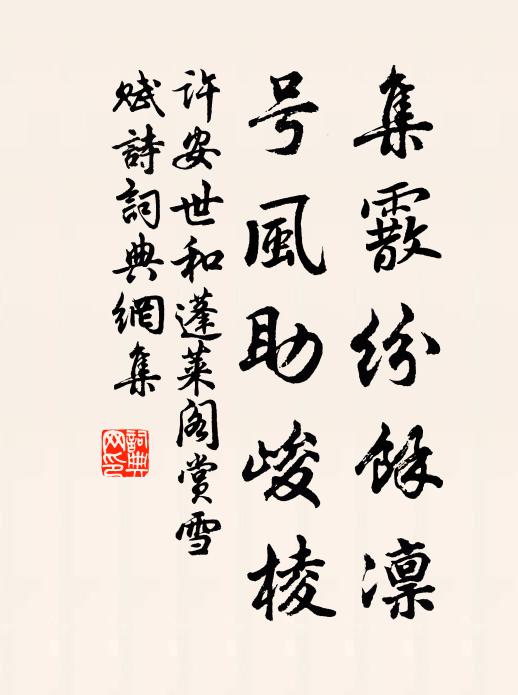 集霰紛餘凛
号風助峻棱
許安世和蓬萊閣賞雪
賦詩詞典網集
詞典网印